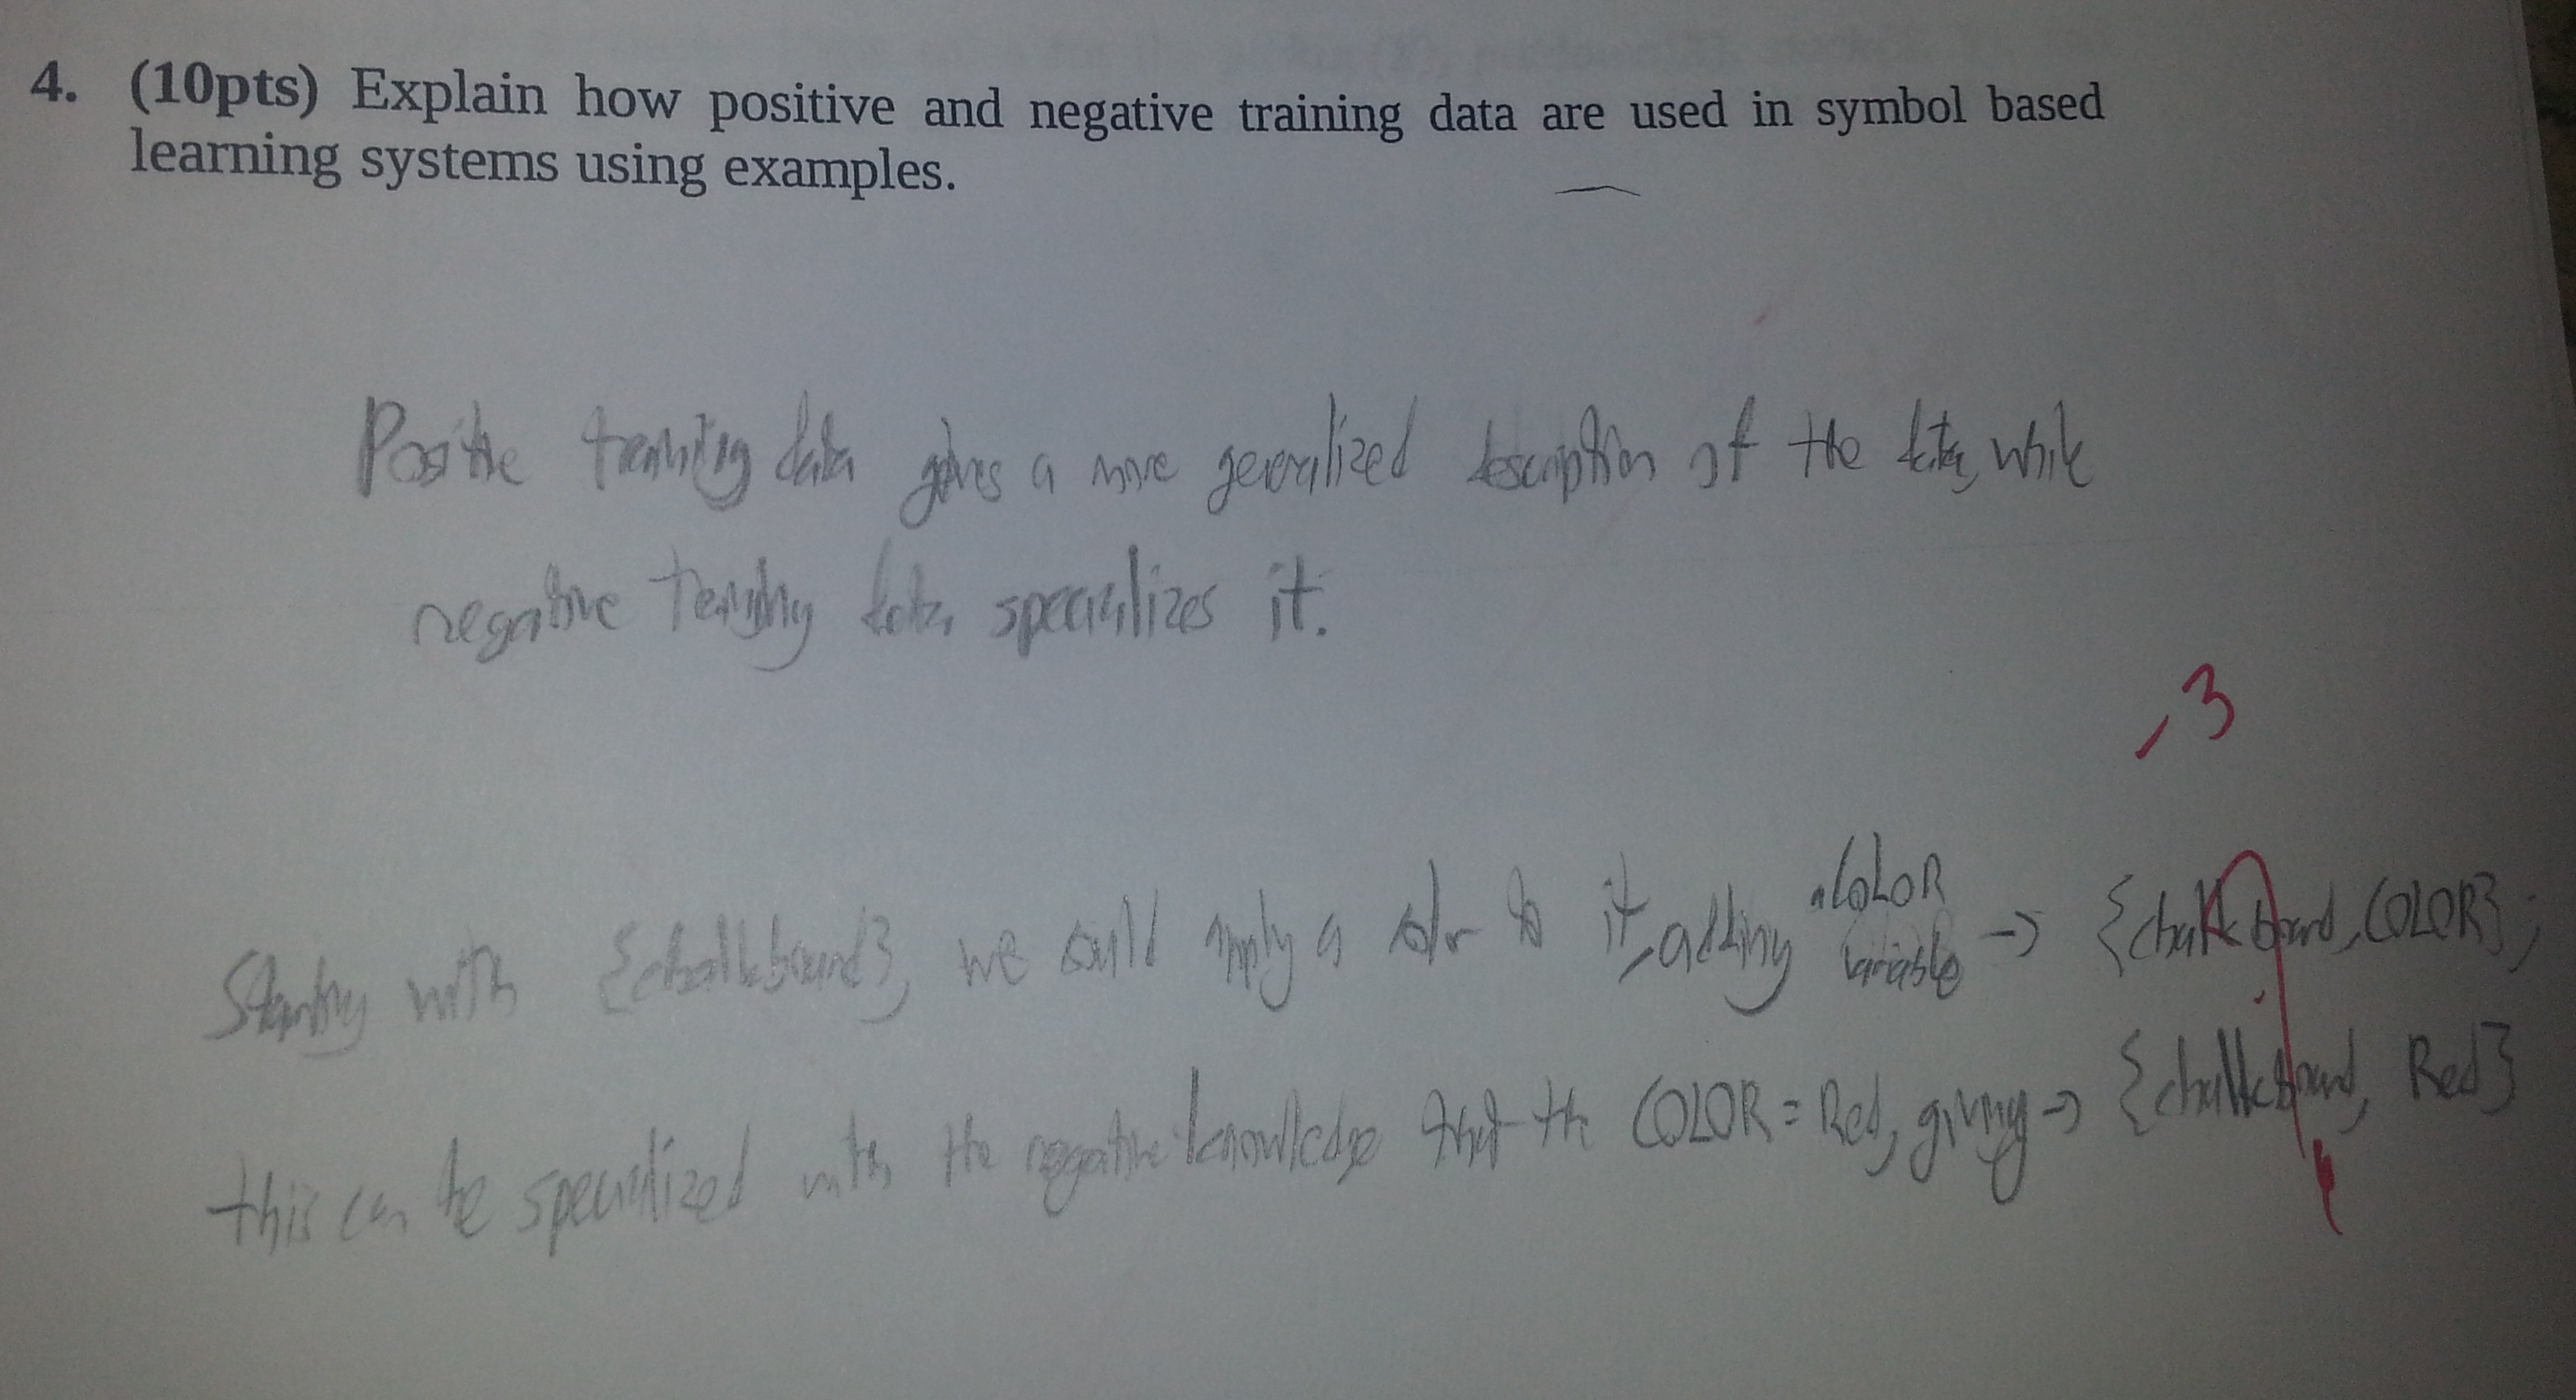 4. (10pts) Explain how positive and negative training data are used in symbol based
learning systems using examples.
Positive training data gives a more generalized description of the data, while
negative training data specializes it.
-3
Starting with {chalkboard}, we could apply a color to it, adding a COLOR variable → {chalkboard, COLOR};
this can be specialized with the negative knowledge that the COLOR = Red, giving → {chalkboard, Red}